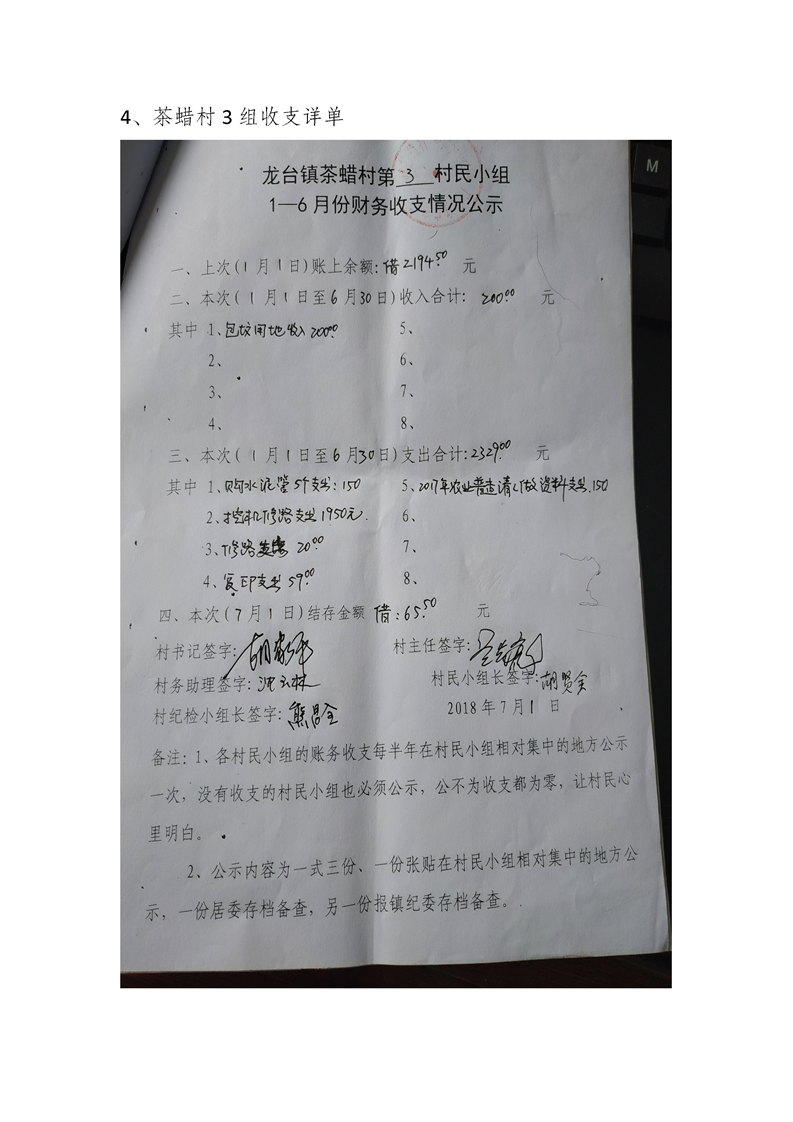 4、茶蜡村 3 组收支详单
M
龙台镇茶蜡村第 3 村民小组
1—6 月份财务收支情况公示
一、上次(1月1日)账上余额:借2194.50 元
二、本次(1月1日至6月30日)收入合计: 200.00 元
其中 1、包坟用地收入200.00 5、
2、 6、
3、 7、
4、 8、
三、本次(1月1日至6月30日)支出合计:2329.00 元
其中 1、购水泥管5个支出:150 5、2017年农业普查请人做资料支出.150
2、挖机修路支出1950元. 6、
3、修路 20.00 7、
4、复印支出59.00 8、
四、本次(7月1日)结存金额 借:65.50 元
村书记签字: 村主任签字:
村务助理签字: 村民小组长签字:胡贤全
村纪检小组长签字:熊昌全 2018年7月1日
备注:1、各村民小组的账务收支每半年在村民小组相对集中的地方公示
一次，没有收支的村民小组也必须公示，公不为收支都为零，让村民心
里明白。
2、公示内容为一式三份、一份张贴在村民小组相对集中的地方公
示，一份居委存档备查，另一份报镇纪委存档备查。